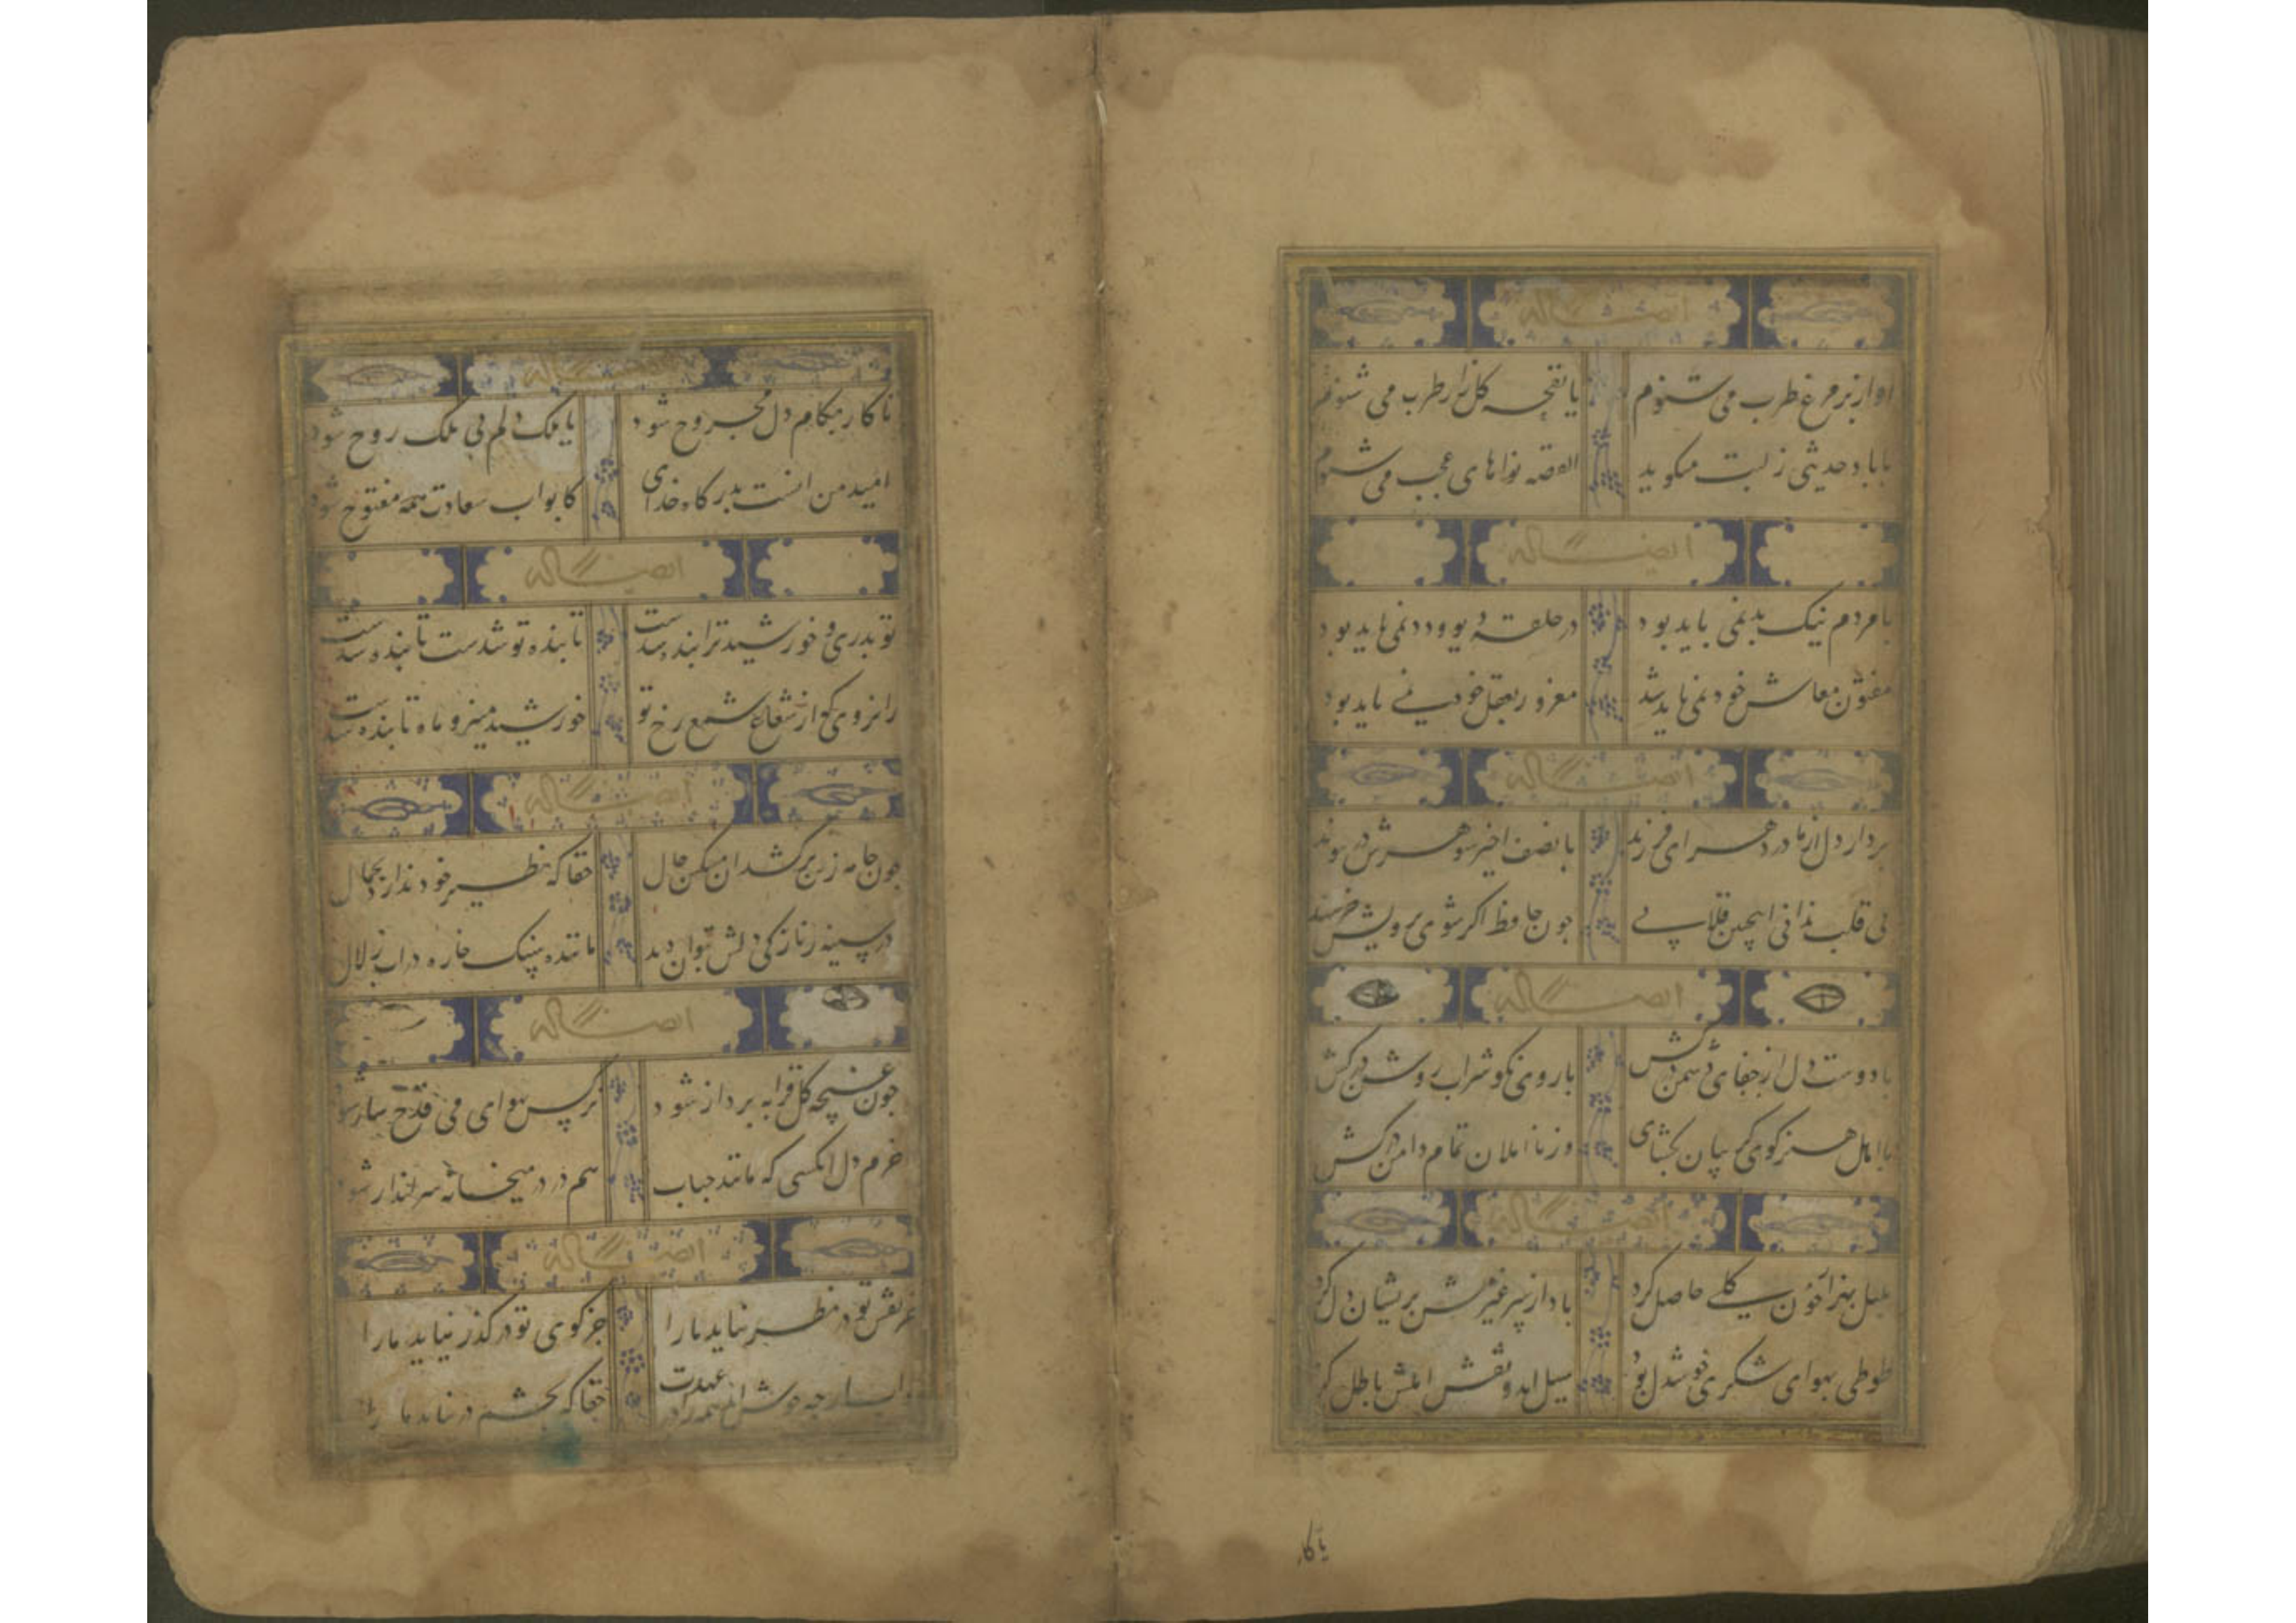 ایضا له
آواز بر مرغ طرب می شنوم یا نفحه کلزار طرب می شنوم
یا باد حدیثی ز لبت میکوید القصه نواهای عجب می شنوم
ایضا له
با مردم نیک بد نمی باید بود در حلقه دیو و دد نمی باید بود
مفتون معاش خود نمی باید شد مغرور بعقل خود نمی باید بود
ایضا له
بردار دل از مادر دهر ای فرزند با نصف اخیر شوهرش در پیوند
نی قلب ندانی اینچنین قلابی چون حافظ اکر شوی برویش خرسند
ایضا له
با دوست دل از جفای دشمن درکش با روی نکو شراب روشن درکش
با اهل هنر کوی کریبان بکشای وز نااهلان تمام دامن درکش
ایضا له
بلبل بهزار خون کلی حاصل کرد باد از سر غیرتش پریشان دل کرد
طوطی بهوای شکری خوشدل بود سیل آمد و نقش املش باطل کرد
تا کار
تا کار بکام دل مجروح شود یا ملک دلم بی ملک روح شود
امید من آنست بدرکاه خدای کابواب سعادت همه مفتوح شود
ایضا له
تو بدری و خورشید ترا بنده شدست تا بنده تو شدست تابنده شدست
زانروی که از شعاع شمع رخ تو خورشید منیر و ماه تابنده شدست
ایضا له
چون جامه ز تن برکشد آن مشکین خال حقا که نظیر خود ندارد بجمال
در سینه ز نازکی دلش بتوان دید ماننده سنک خاره در آب زلال
ایضا له
چون غنچه کل قرابه پرداز شود نرکس بهوای می قدح ساز شود
خرم دل آنکسی که مانند حباب هم در در میخانه سرانداز شود
ایضا له
جز نقش تو در نظر نیاید ما را جز کوی تو در کذر نیاید ما را
خوش آمد همه را در عهدت حقا که بچشم در نیاید ما را